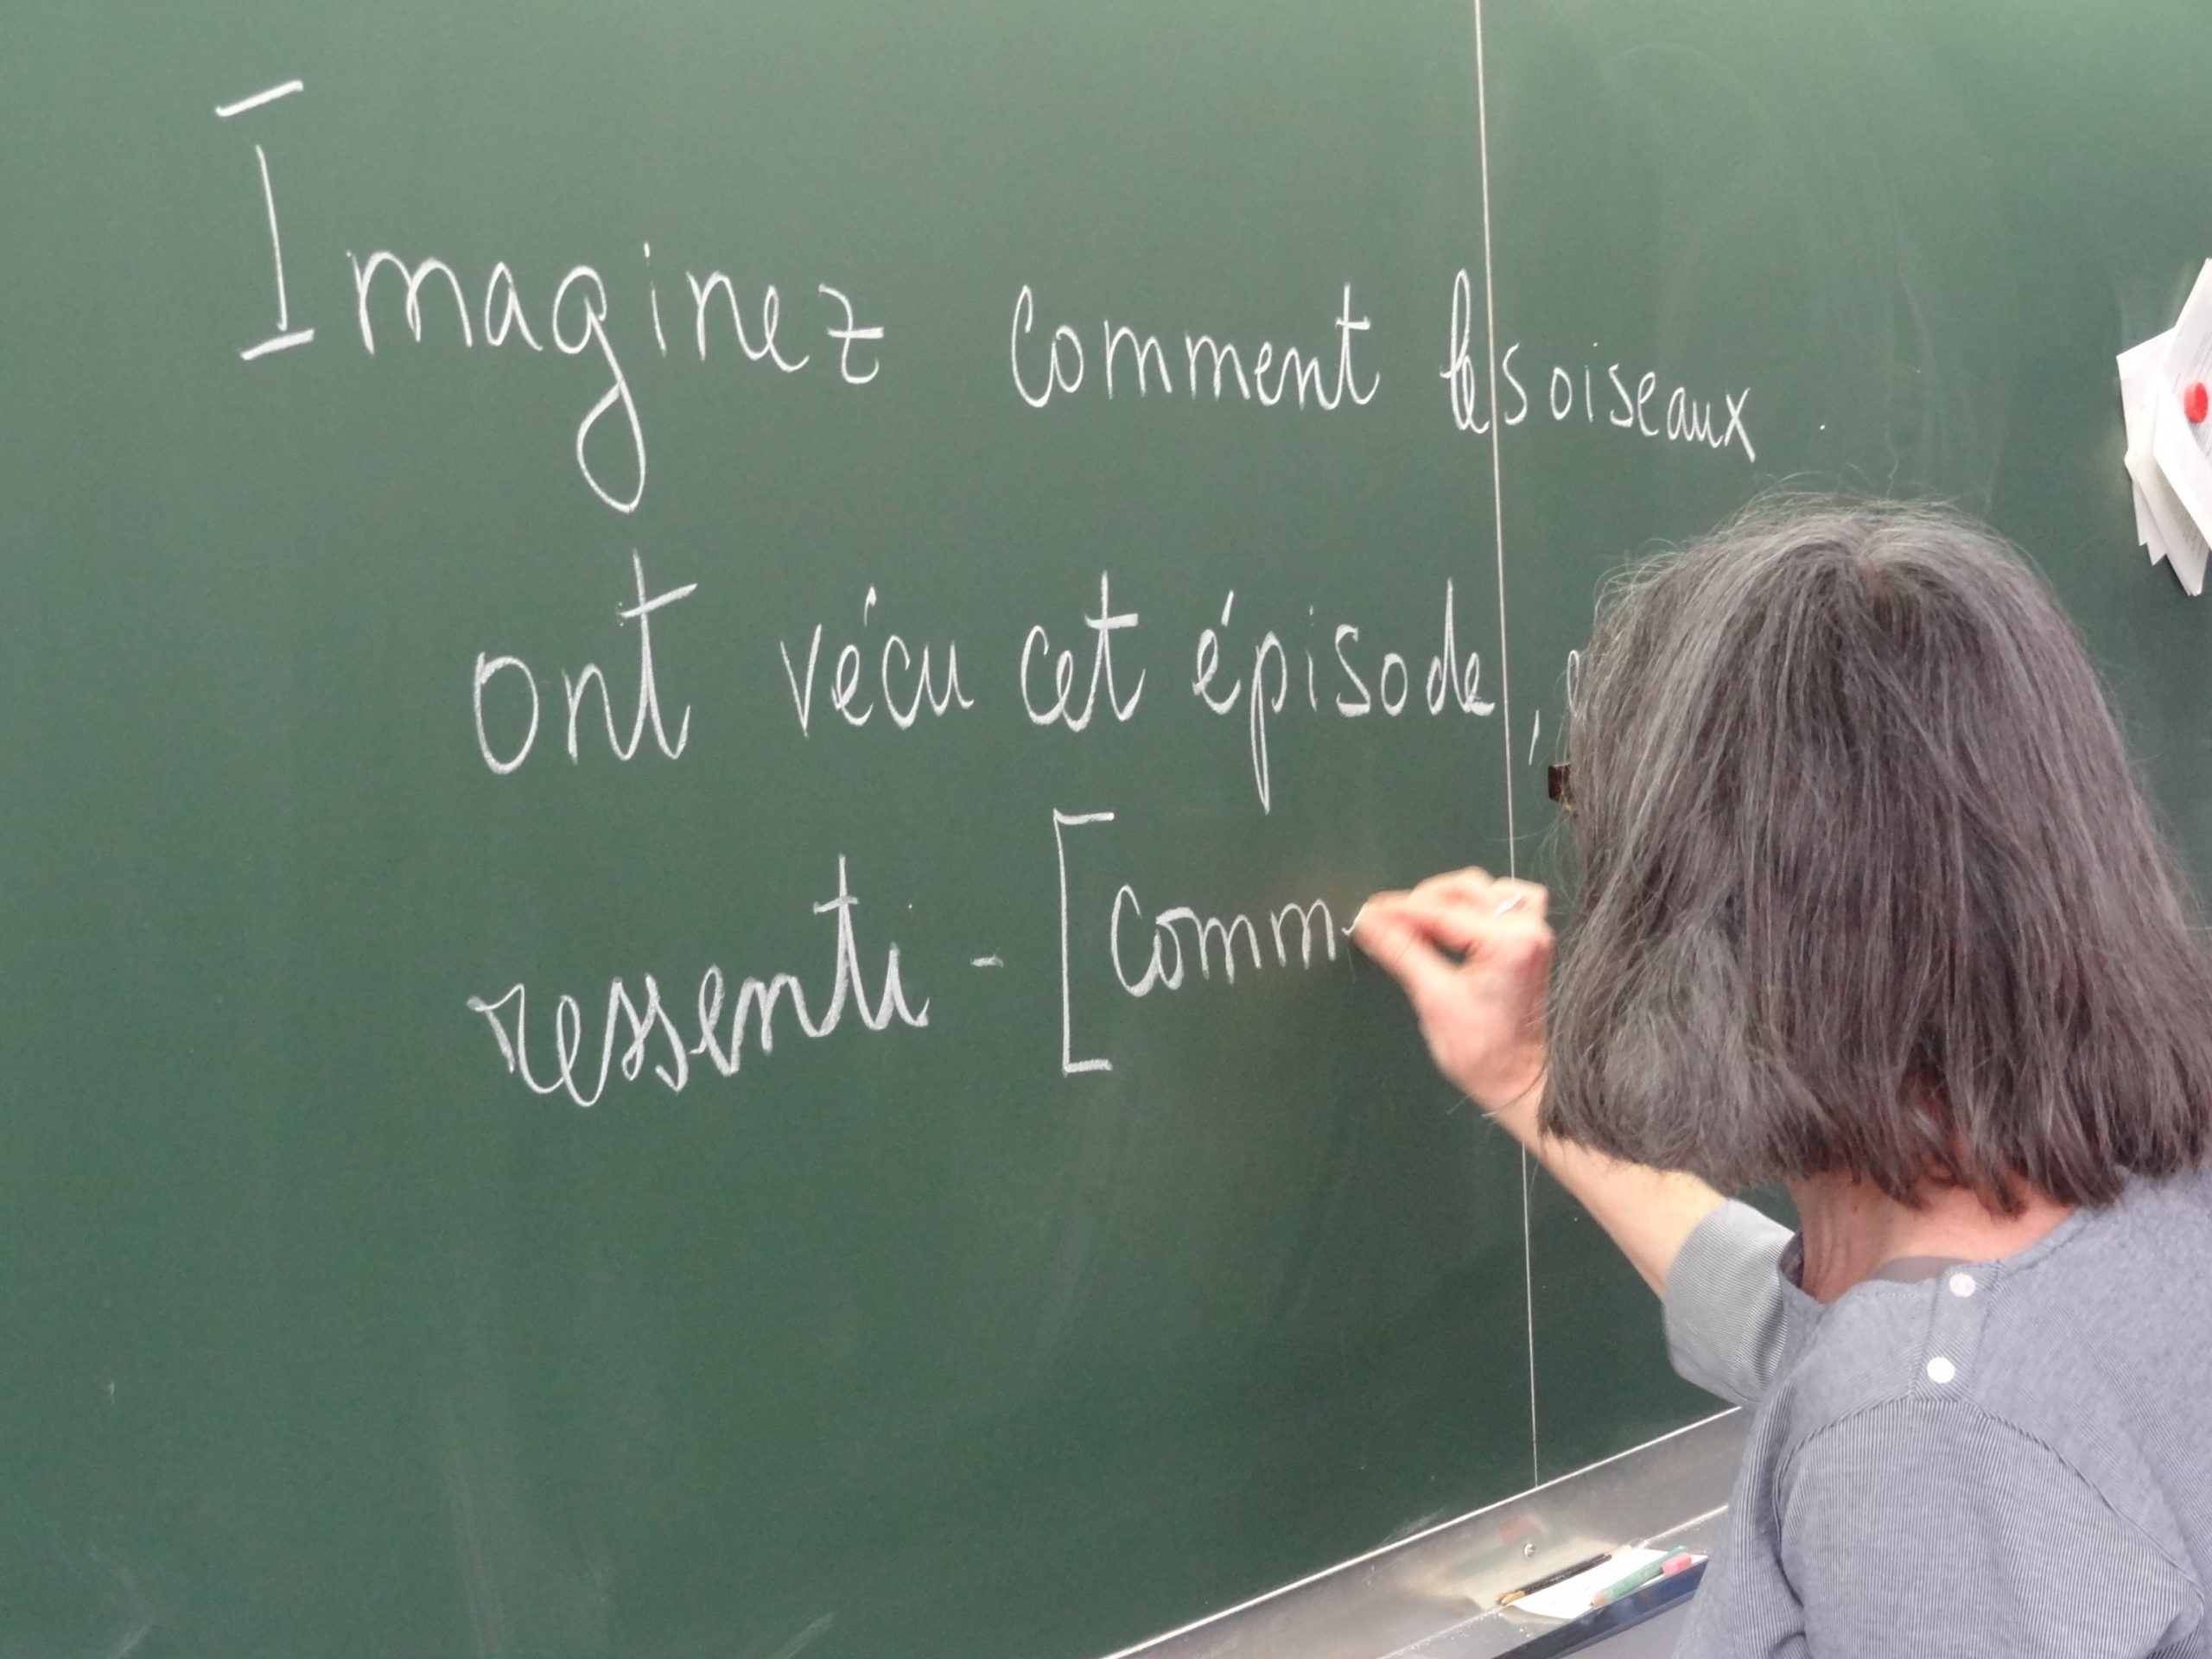 Imaginez comment les oiseaux
ont vécu cet épisode,
ressenti - [Comm